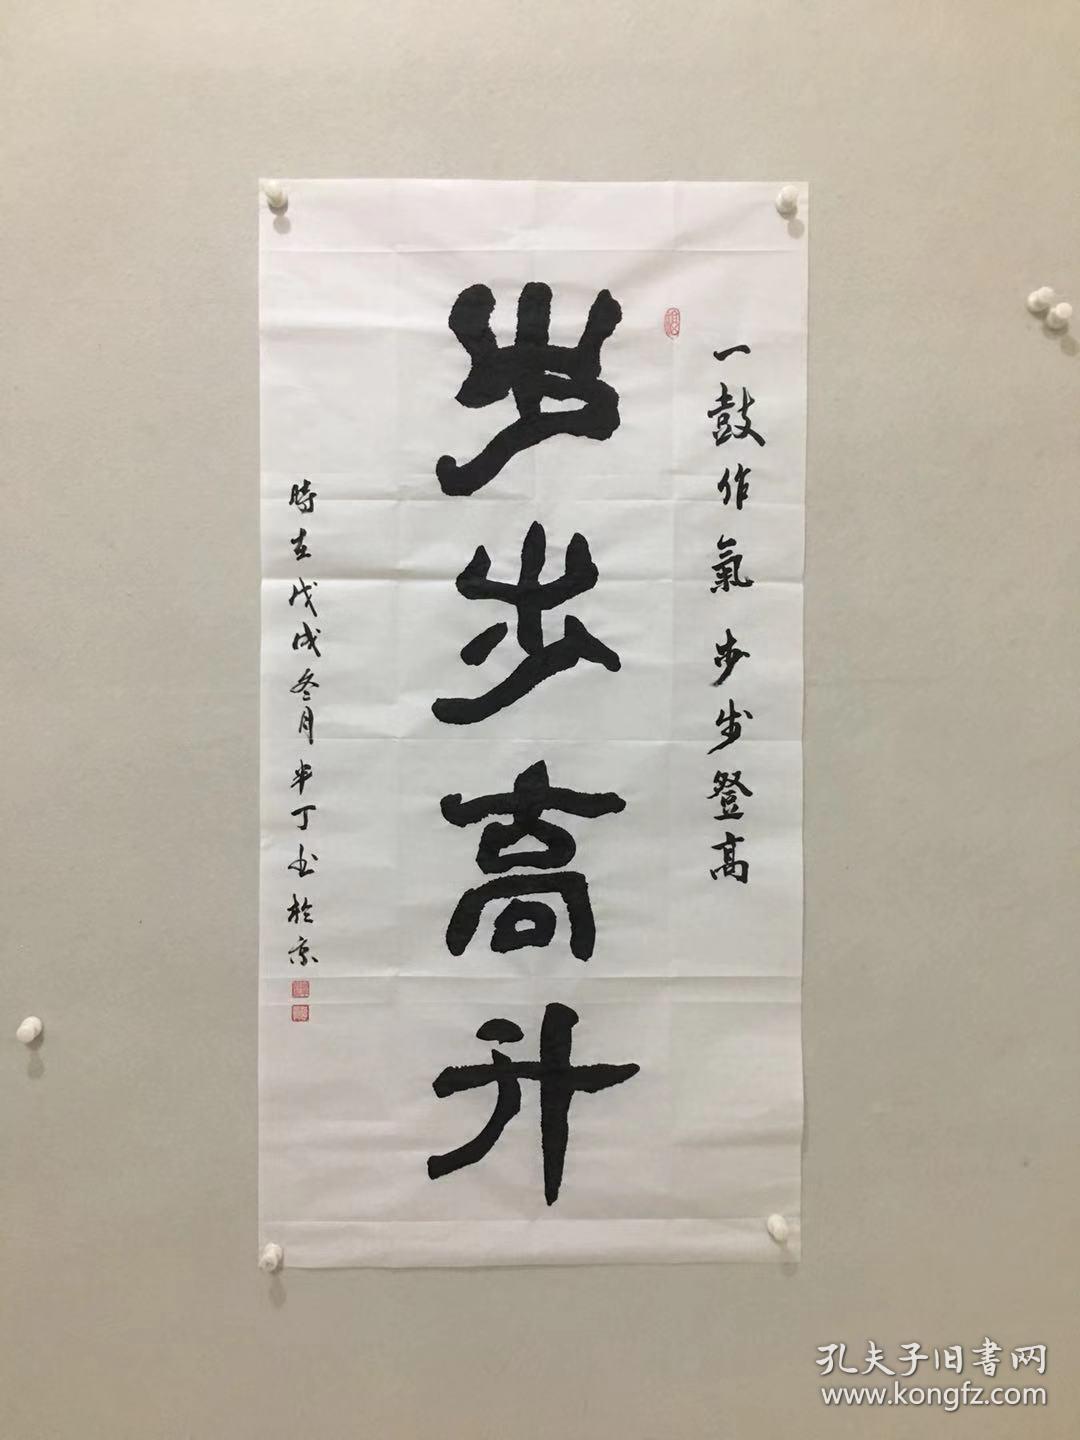 一鼓作氣 步步登高
步步高升
時在戊戌冬月半丁书於京
孔夫子旧書网
www.kongfz.com